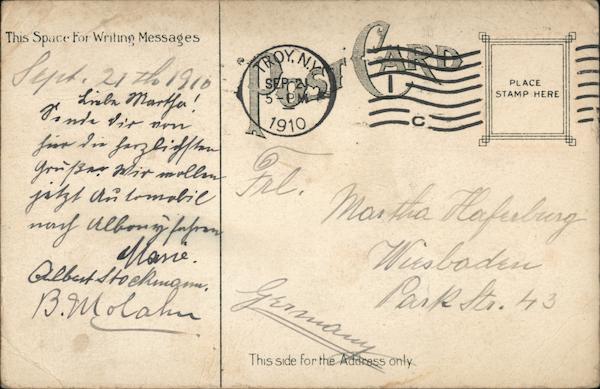 This Space For Writing Messages
POST CARD
TROY, N.Y.
SEP 21
5-PM
1910
1
C
PLACE
STAMP HERE
Sept. 21th 1910
Liebe Martha!
Sende Dir von
hier die herzlichsten
Grüße. Wir wollen
jetzt Automobil
nach Albony fahren
Marie.
Albert Stockmann.
B. Molahn
Frl.
Martha Haferburg
Wiesbaden
Park Str. 43
Germany
This side for the Address only.